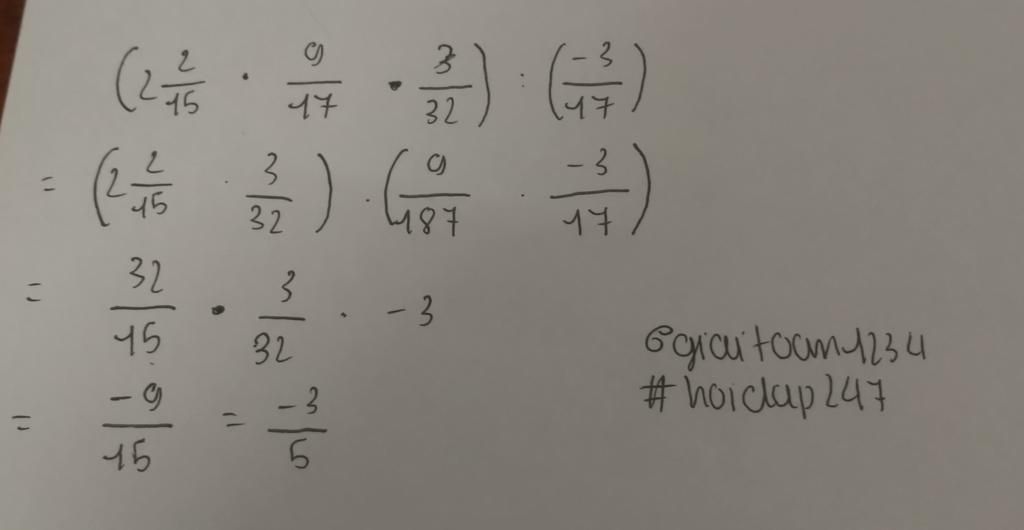 (2 2/15 · 9/17 · 3/32) : (-3/17)
= (2 2/15 · 3/32) · (9/187 · -3/17)
= 32/15 · 3/32 · -3
= -9/15 = -3/5
@giaitoan1234
#hoidap247